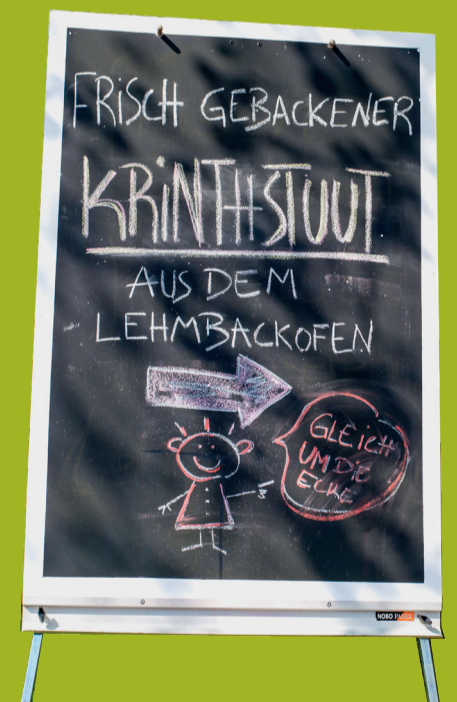 FRiSCH GEBACKENER
KRiNTHSTUUT
AUS DEM
LEHMBACKOFEN
GLEiCH
UM DiE
ECKE
NOBO